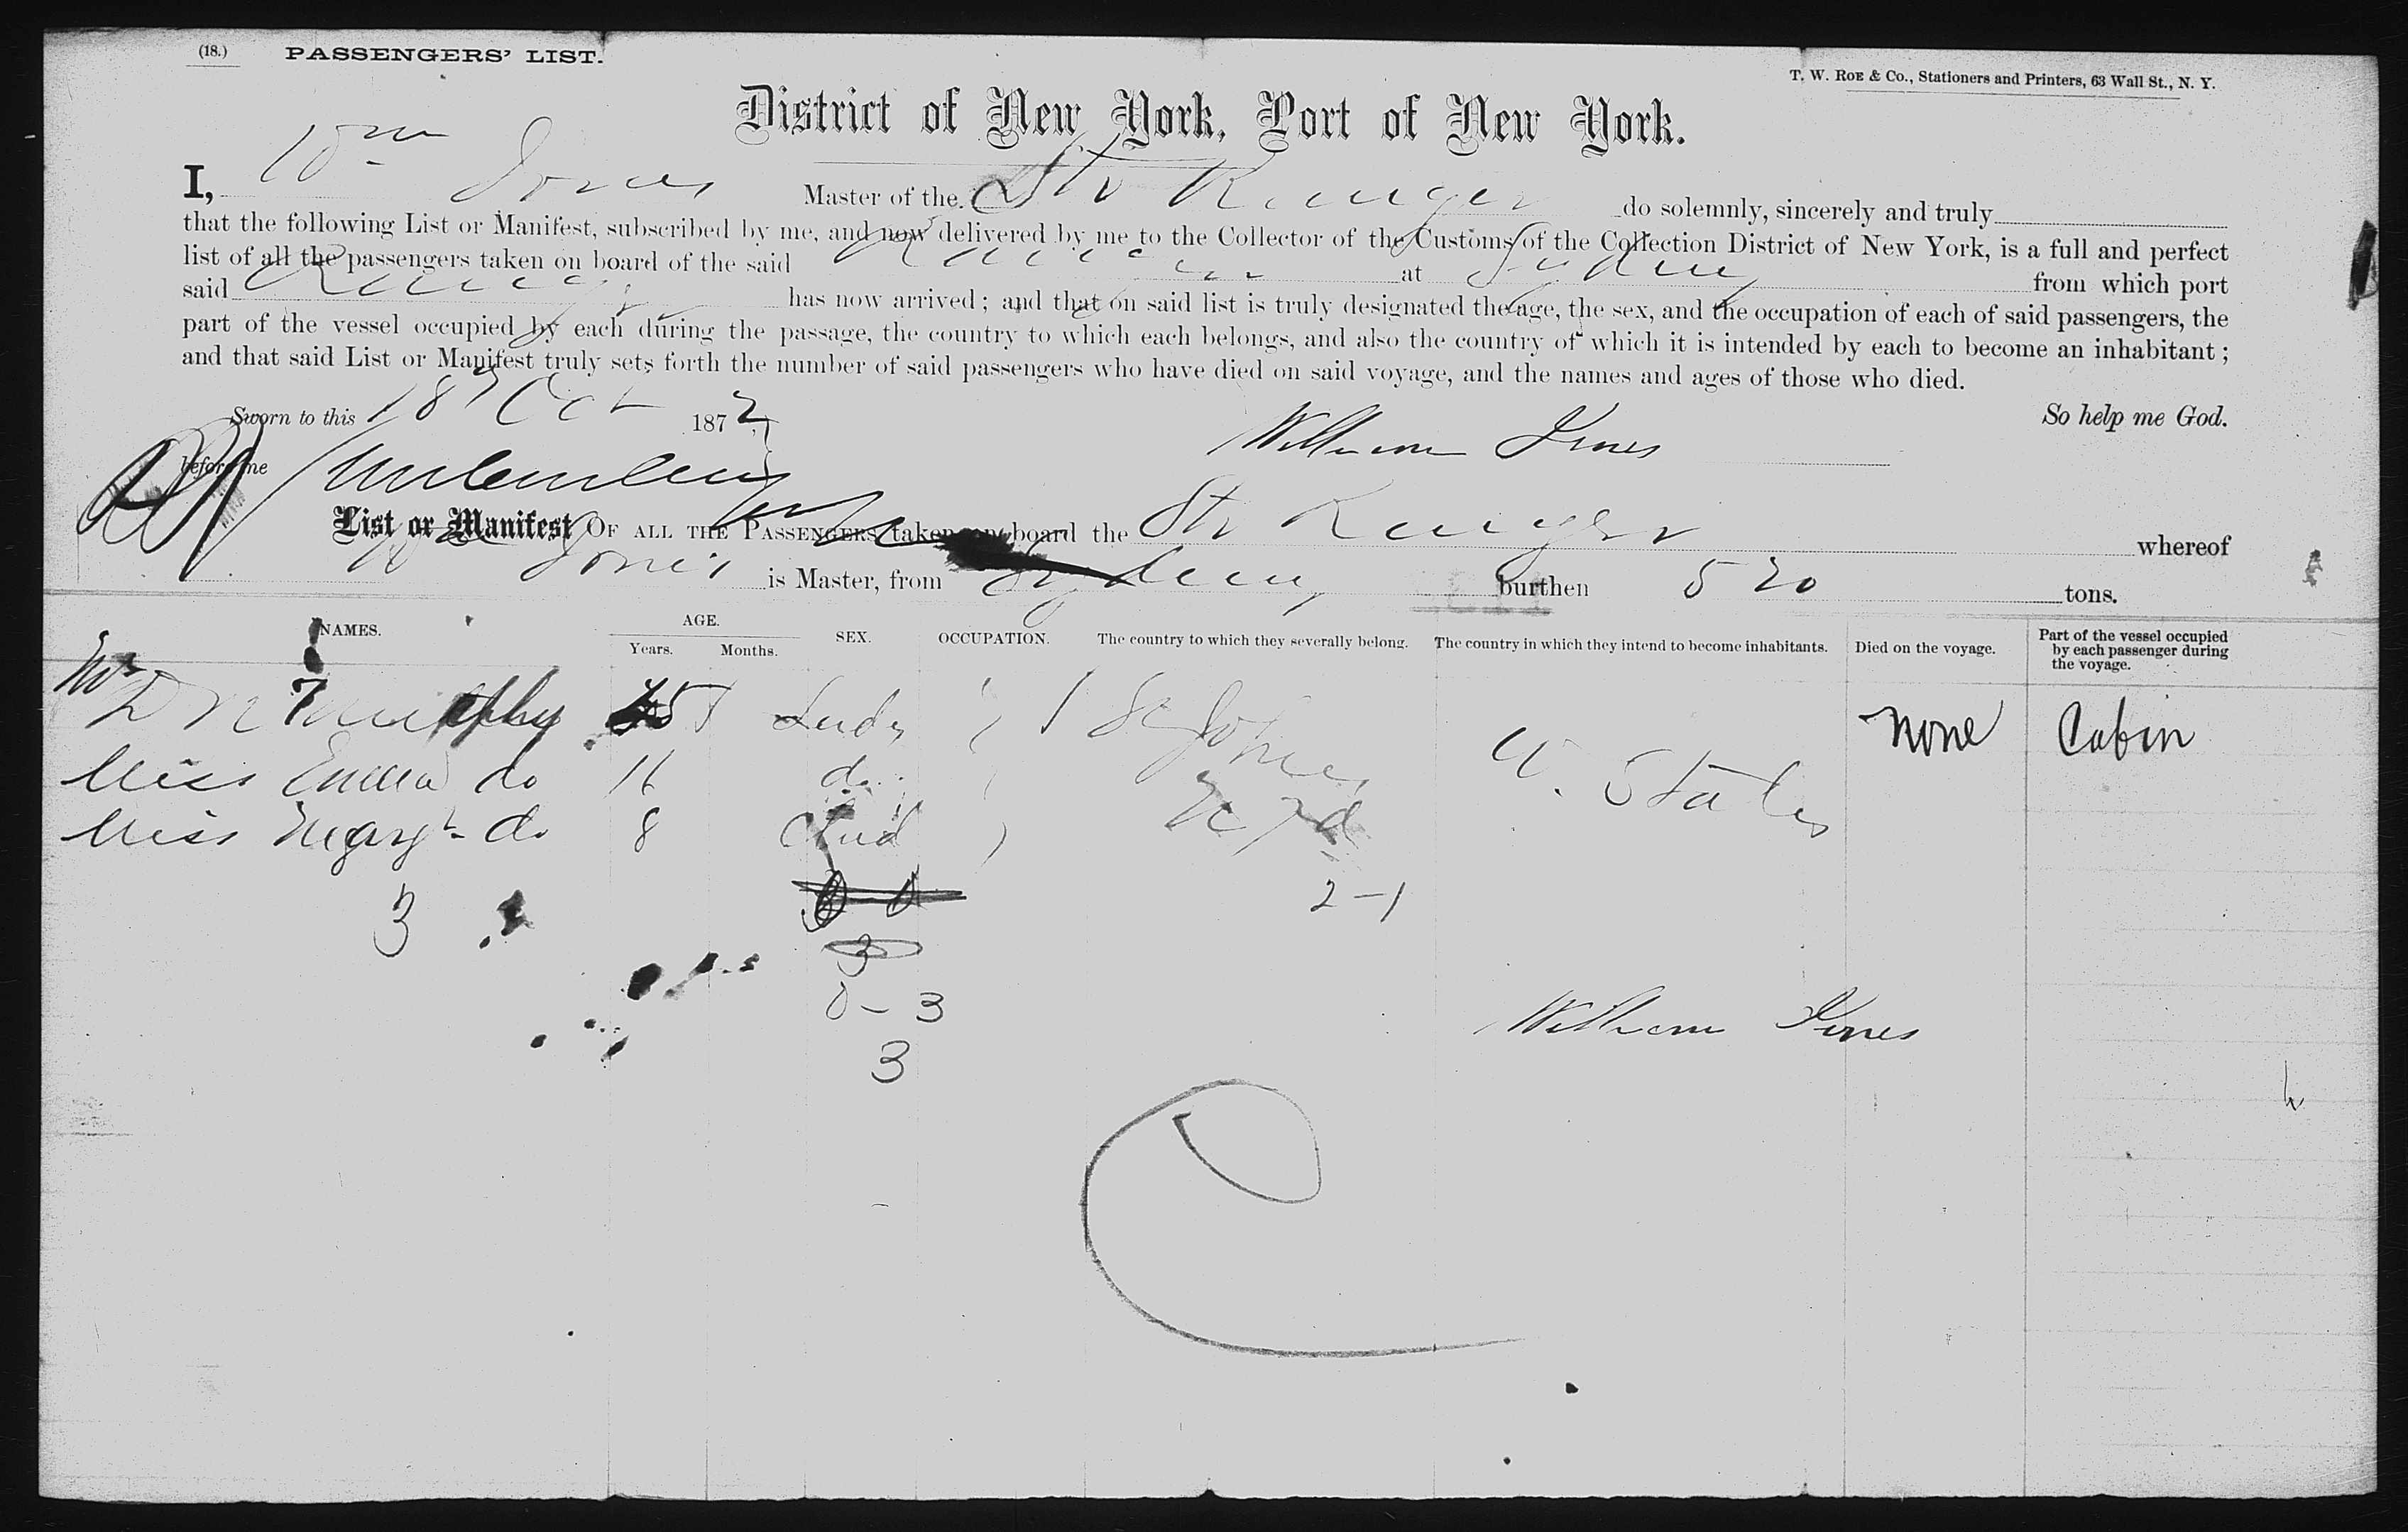 (18.) PASSENGERS' LIST.
T. W. ROE & CO., Stationers and Printers, 63 Wall St., N. Y.
District of New York, Port of New York.
I, Wm Jones Master of the Str Ranger do solemnly, sincerely and truly
that the following List or Manifest, subscribed by me, and now delivered by me to the Collector of the Customs of the Collection District of New York, is a full and perfect
list of all the passengers taken on board of the said Ranger at Sydney from which port
said Ranger has now arrived; and that on said list is truly designated the age, the sex, and the occupation of each of said passengers, the
part of the vessel occupied by each during the passage, the country to which each belongs, and also the country of which it is intended by each to become an inhabitant;
and that said List or Manifest truly sets forth the number of said passengers who have died on said voyage, and the names and ages of those who died.
Sworn to this 18 Oct 1872 So help me God.
before me William Jones
List or Manifest OF ALL THE PASSENGERS taken on board the Str Ranger whereof
Wm Jones is Master, from Sydney burthen 520 tons.
NAMES. AGE. Years. Months. SEX. OCCUPATION. The country to which they severally belong. The country in which they intend to become inhabitants. Died on the voyage. Part of the vessel occupied by each passenger during the voyage.
Mrs D 45 Lady St Johns U. States none Cabin
Miss Emma do 16 do
Miss Margt do 8 Child N F d
3 2-1
3
0-3
William Jones
3